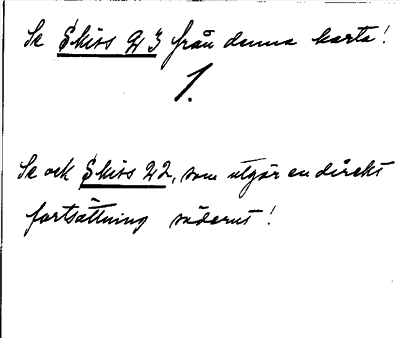 Se Skiss 23 från denna karta!
1.
Se ock Skiss 22, som utgör en direkt
fortsättning söderut!